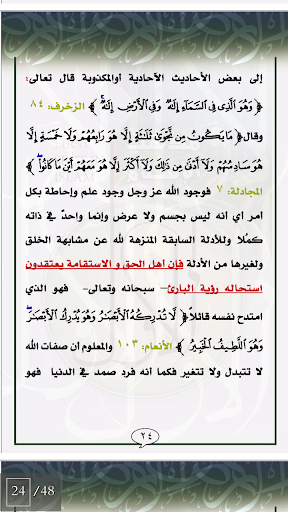 إلى بعض الأحاديث الآحادية أوالمكذوبة قال تعالى:
﴿ وَهُوَ ٱلَّذِى فِى ٱلسَّمَآءِ إِلَٰهٌ وَفِى ٱلْأَرْضِ إِلَٰهٌ ﴾ الزخرف: ٨٤
وقال﴿ مَا يَكُونُ مِن نَّجْوَىٰ ثَلَٰثَةٍ إِلَّا هُوَ رَابِعُهُمْ وَلَا خَمْسَةٍ إِلَّا
هُوَ سَادِسُهُمْ وَلَآ أَدْنَىٰ مِن ذَٰلِكَ وَلَآ أَكْثَرَ إِلَّا هُوَ مَعَهُمْ أَيْنَ مَا كَانُوا۟ ﴾
المجادلة: ٧ فوجود الله عز وجل وجود علم وإحاطة بكل
امر أي انه ليس بجسم ولا عرض وإنما واحدٌ في ذاته
كمًلا وللأدلة السابقة المنزهة لله عن مشابهة الخلق
ولغيرها من الأدلة فإن أهل الحق و الاستقامة يعتقدون
استحاله رؤية البارئ– سبحانه وتعالى– فهو الذي
امتدح نفسه قائلاً﴿ لَّا تُدْرِكُهُ ٱلْأَبْصَٰرُ وَهُوَ يُدْرِكُ ٱلْأَبْصَٰرَ
وَهُوَ ٱللَّطِيفُ ٱلْخَبِيرُ ﴾ الأنعام: ١٠٣ والمعلوم أن صفات الله
لا تتبدل ولا تتغير فكما أنه فرد صمد في الدنيا فهو
٢٤
24 /48